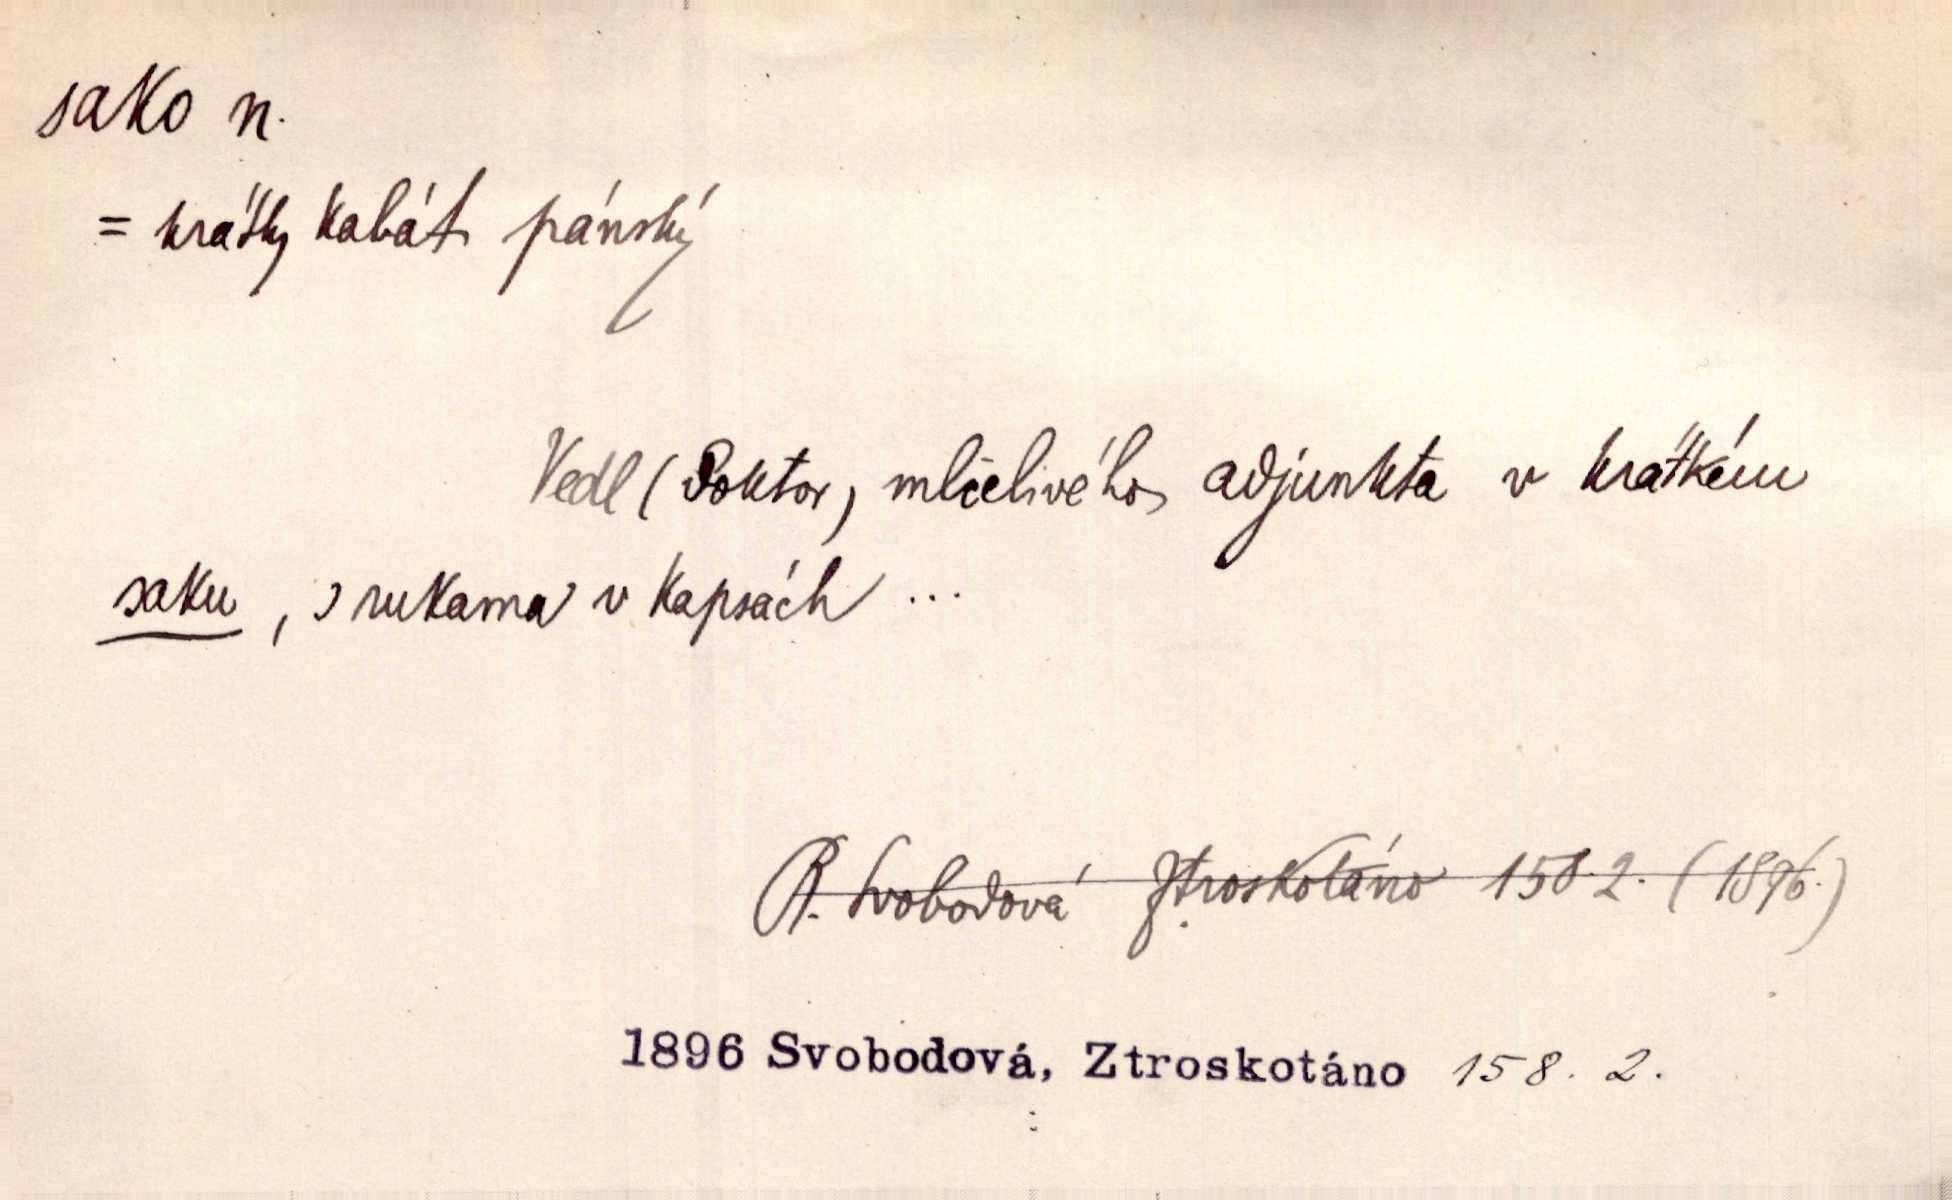 sako n.
= krátký kabát pánský
Vedl (Doktor) mlčelivého adjunkta v krátkém
saku, s rukama v kapsách ...
R. Svobodová Ztroskotáno 158.2. (1896.)
1896 Svobodová, Ztroskotáno 158. 2.